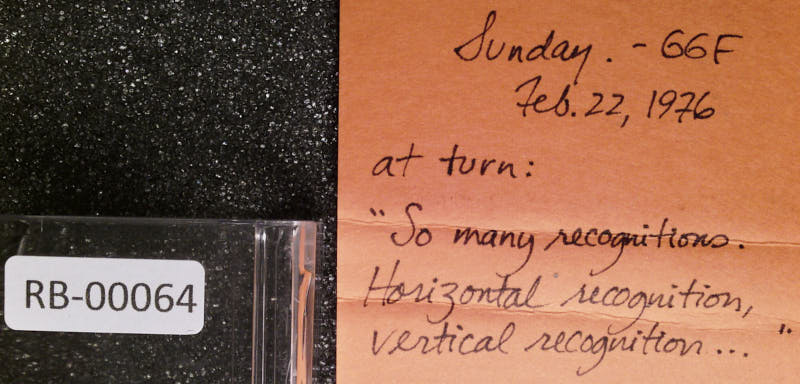 Sunday. - 66F
Feb. 22, 1976
at turn:
"So many recognitions.
Horizontal recognition,
vertical recognition... "
RB-00064